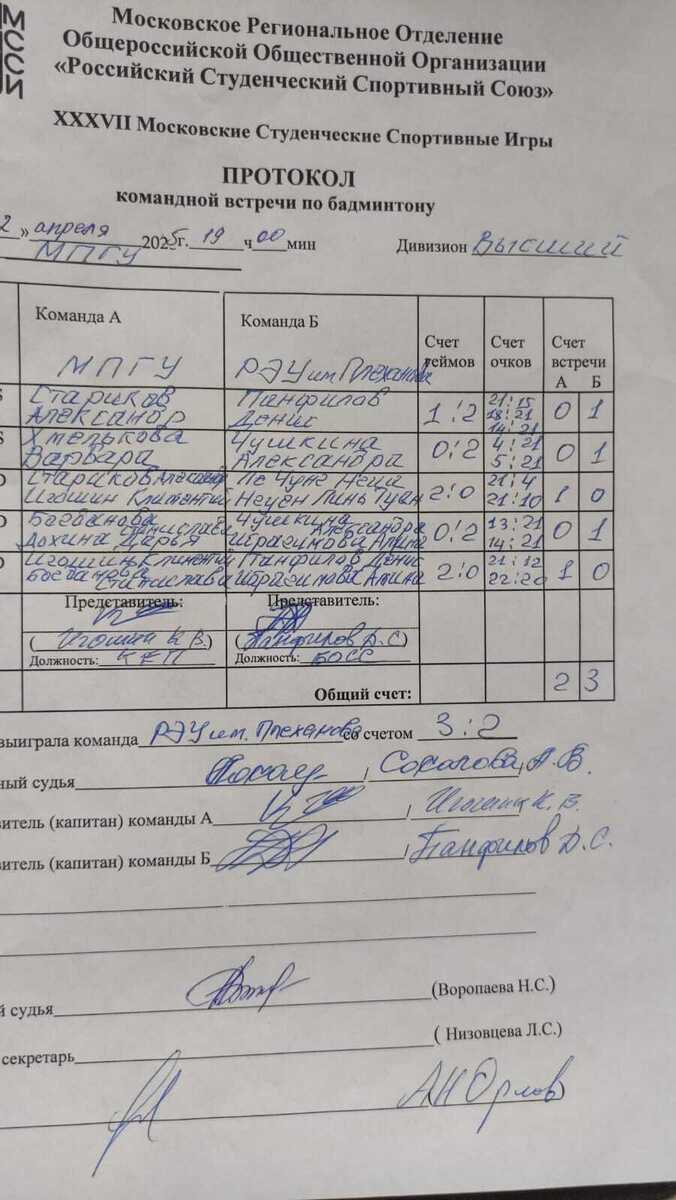 МССИ
Московское Региональное Отделение
Общероссийской Общественной Организации
«Российский Студенческий Спортивный Союз»
XXXVII Московские Студенческие Спортивные Игры
ПРОТОКОЛ
командной встречи по бадминтону
2 » апреля 2025г. 19 ч 00 мин Дивизион Высший
МПГУ
Команда А Команда Б Счет геймов Счет очков Счет встречи А Б
МПГУ РЭУ им. Плеханова
S Стариков Александр Панфилов Денис 1:2 21:15 18:21 14:21 0 1
S Хмелькова Варвара Чушкина Александра 0:2 4:21 5:21 0 1
D Стариков Александр Ле Чунг
Игошин Климентий Нгуен Линь Туан 2:0 21:4 21:10 1 0
D Богданова Станислава Чушкина Александра
Дохина Дарья Ибрагимова Алина 0:2 13:21 14:21 0 1
D Игошин Климентий Панфилов Денис
Богданова Станислава Ибрагимова Алина 2:0 21:12 22:20 1 0
Представитель: Представитель:
(Игошин К.В.) (Панфилов Д.С)
Должность: КЕП Должность: БОСС
Общий счет: 2 3
выиграла команда РЭУ им. Плеханова со счетом 3:2
ный судья / А.В.
витель (капитан) команды А / Игошин К.В.
витель (капитан) команды Б / Панфилов Д.С.
й судья (Воропаева Н.С.)
секретарь ( Низовцева Л.С.)
АН Орлов